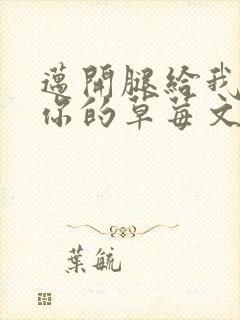 邁開腿給我
你的草莓文
葉毓